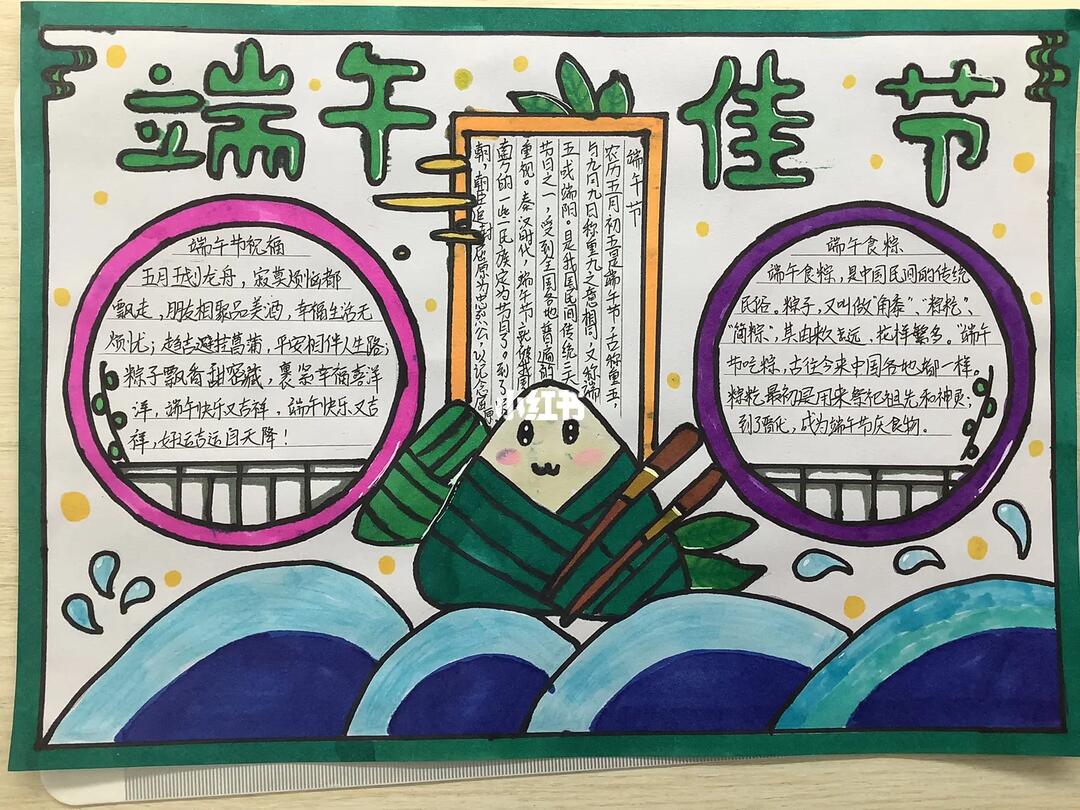 端午佳节
端午节祝福
五月开划龙舟，寂寞烦恼都
飘走，朋友相聚品美酒，幸福生活无
烦忧；趋吉避挂菖蒲，平安相伴人生路；
粽子飘香甜蜜藏，裹紧幸福喜洋
洋，端午快乐又吉祥，端午快乐又吉
祥，好运吉运自天降！
端午节
农历五月初五是端午节，古称重五，
与九月九日称重九之意相同，又称端
五或端阳。是我国民间传统三大
节日之一，受到全国各地普遍的
重视。秦汉时代，端午节就继我国
南方的一些民族定为节日了。到了
朝，朝臣追封屈原为忠烈公，以记念屈原
小红书
端午食粽
端午食粽，是中国民间的传统
民俗。粽子，又叫做“角黍”、“粽籺”、
“筒粽”，其由来久远、花样繁多。“端午
节吃粽，古往今来中国各地都一样。
粽籺最初是用来祭祀祖先和神灵；
到了晋代，成为端午节庆食物。